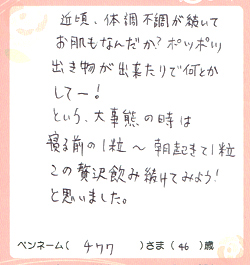 近頃、体調不調が続いて
お肌もなんだか?ポツポツ
出き物が出来たりで何とか
してー!
という、大事態の時は
寝る前の1粒〜朝起きて1粒
この贅沢飲み続けてみよう!
と思いました。
ペンネーム( チワワ )さま(46)歳